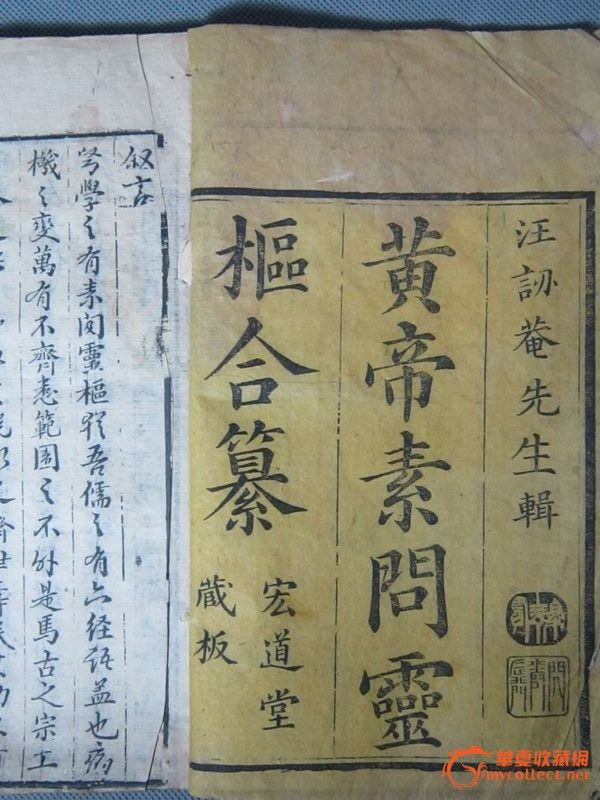 汪訒菴先生輯
黄帝素問靈
樞合纂
宏道堂
藏板
叙言
學之有素问靈樞犹吾儒之有六经语孟也病
機之變萬有不齊悉範圍之不外是馬古之宗工
華夏收藏網
mycollect.net